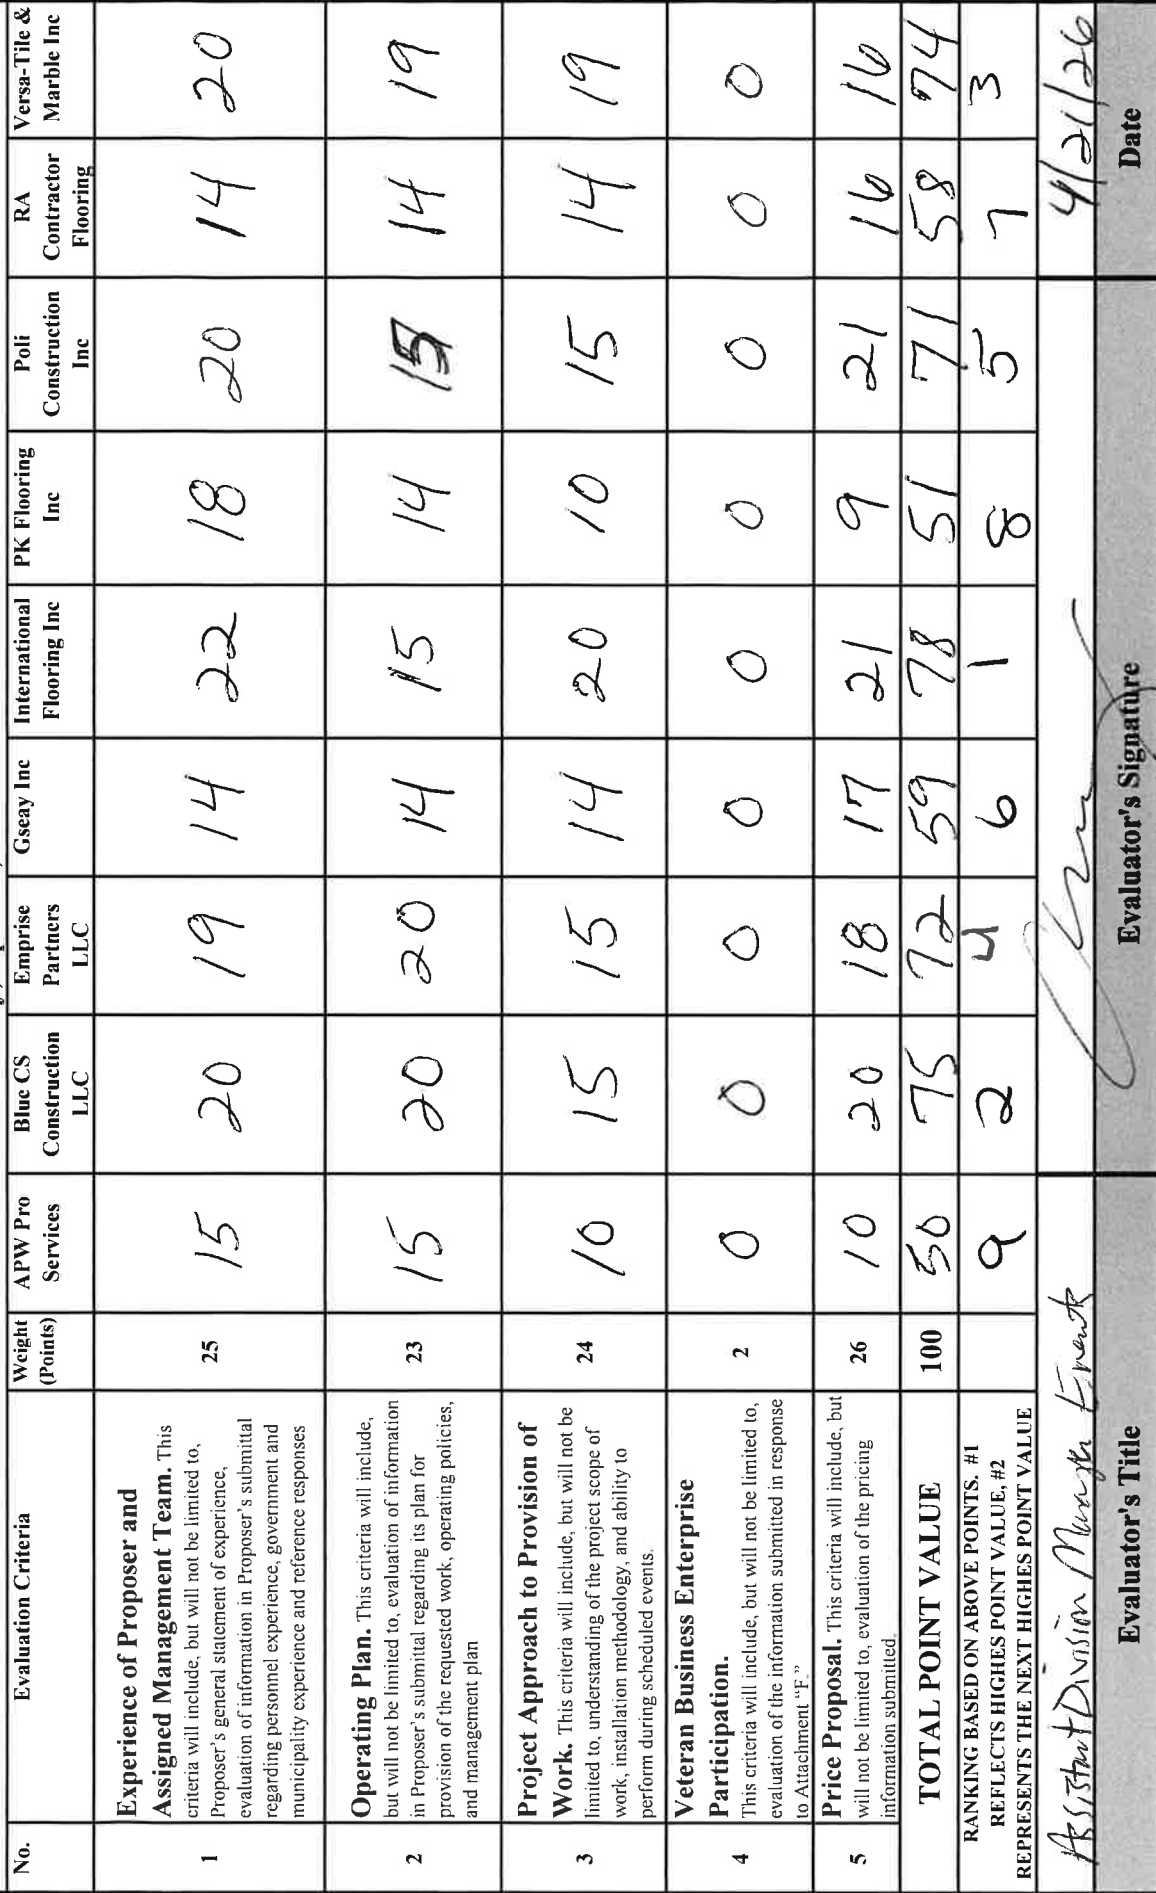 No. Evaluation Criteria Weight (Points) APW Pro Services Blue CS Construction LLC Emprise Partners LLC Gseay Inc International Flooring Inc PK Flooring Inc Poli Construction Inc RA Contractor Flooring Versa-Tile & Marble Inc
1 Experience of Proposer and 25 15 20 19 14 22 18 20 14 20
Assigned Management Team. This
criteria will include, but will not be limited to,
Proposer's general statement of experience,
evaluation of information in Proposer's submittal
regarding personnel experience, government and
municipality experience and reference responses
2 Operating Plan. This criteria will include, 23 15 20 20 14 15 14 15 14 19
but will not be limited to, evaluation of information
in Proposer's submittal regarding its plan for
provision of the requested work, operating policies,
and management plan
3 Project Approach to Provision of 24 10 15 15 14 20 10 15 14 19
Work. This criteria will include, but will not be
limited to, understanding of the project scope of
work, installation methodology, and ability to
perform during scheduled events.
4 Veteran Business Enterprise 2 0 0 0 0 0 0 0 0 0
Participation.
This criteria will include, but will not be limited to,
evaluation of the information submitted in response
to Attachment "F."
5 Price Proposal. This criteria will include, but 26 10 20 18 17 21 9 21 16 16
will not be limited to, evaluation of the pricing
information submitted.
TOTAL POINT VALUE 100 50 75 72 59 78 51 71 58 74
RANKING BASED ON ABOVE POINTS. #1 9 2 4 6 1 8 5 7 3
REFLECTS HIGHES POINT VALUE, #2
REPRESENTS THE NEXT HIGHES POINT VALUE
Assistant Division 4/21/26
Evaluator's Title Evaluator's Signature Date